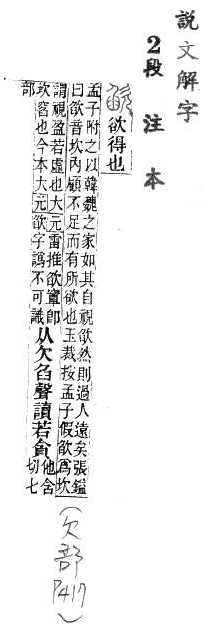 説文解字
2段注本
欲得也
孟子附之以韓魏之家如其自視欿然則過人遠矣張鎰
曰欿音坎內顧不足而有所欲也玉裁按孟子假欿爲坎
謂視盈若虛也大元雷推欿窞卽
坎窞也今本大元欿字譌不可識
从欠臽聲讀若貪
他含
切七
部
(欠部P417)